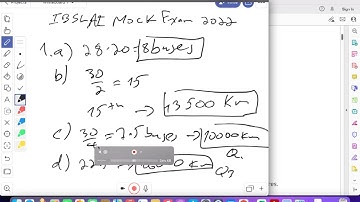 IBSLAI Mock Exam 2022
1.a) 28-20=8 buses
b) 30/2 = 15
15th → 13500 Km
c) 30/4 = 7.5 buses → 10000 Km
Q1
d) 22.5
Km
Q3